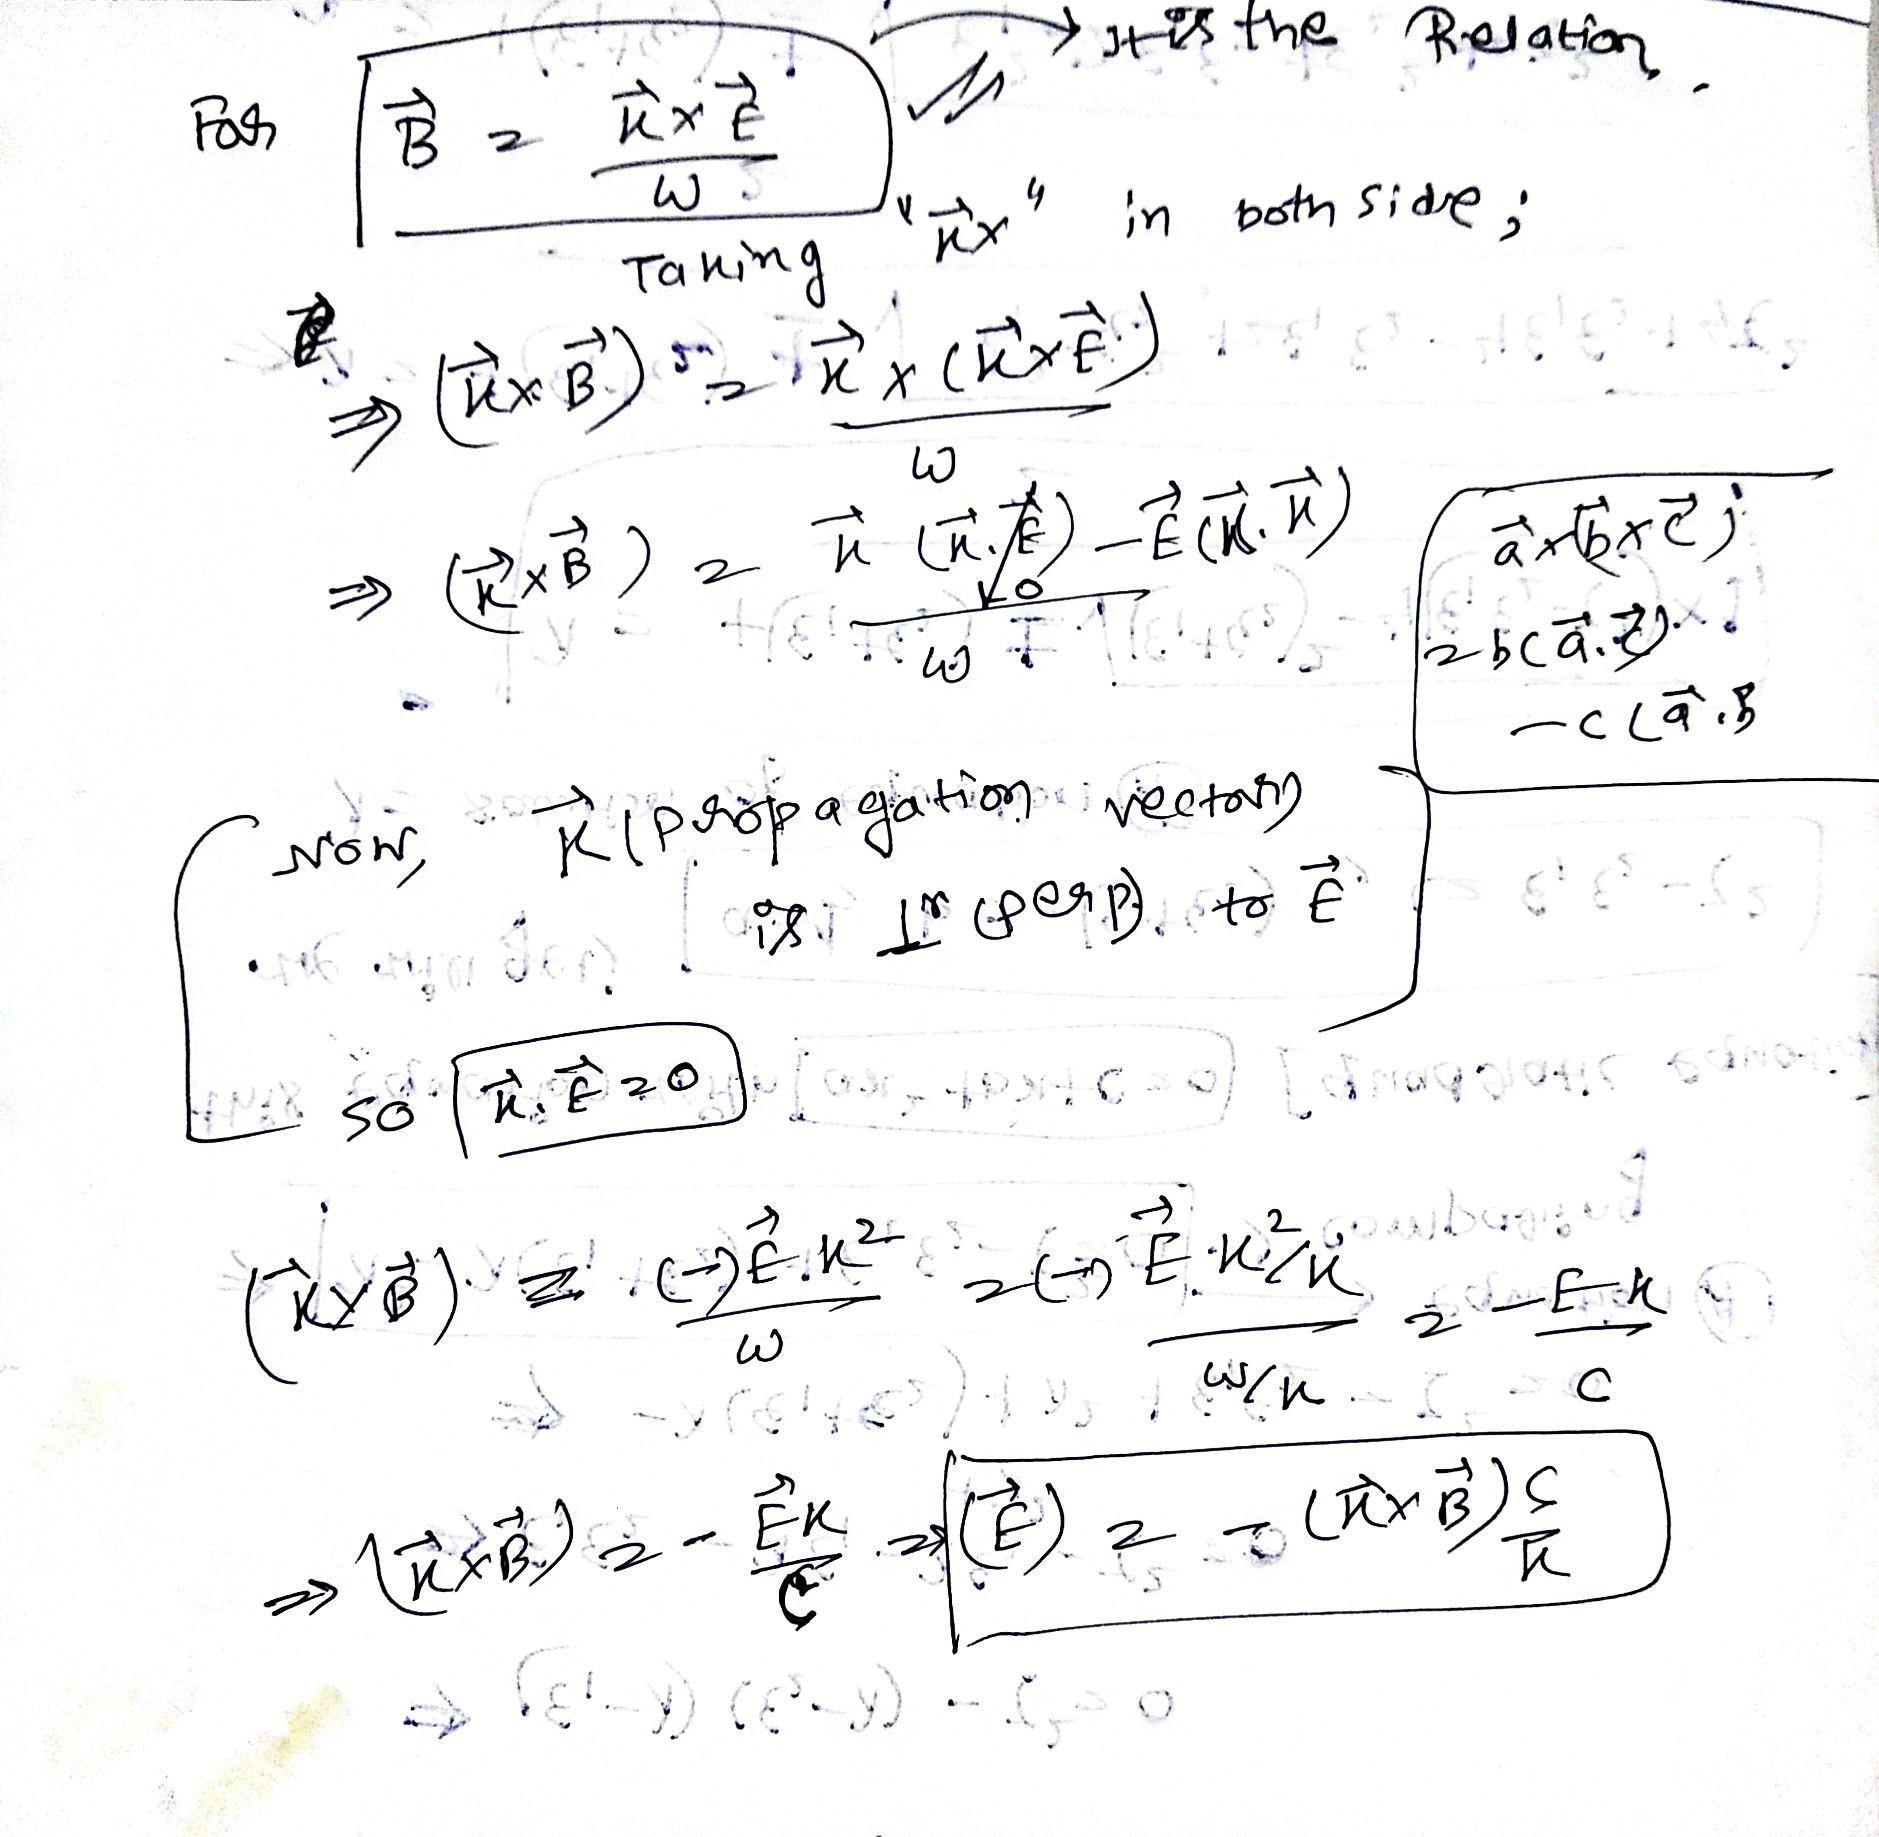 → It is the Relation.
For B⃗ = k⃗ × E⃗ / ω
Taking "k⃗×" in both side;
⇒ (k⃗×B⃗) = k⃗ × (k⃗×E⃗) / ω
⇒ (k⃗×B⃗) = k⃗ (k⃗.E⃗) 0 - E⃗ (k⃗.k⃗) / ω
a⃗×(b⃗×c⃗);
= b(a⃗.c⃗)
- c(a⃗.b
Now, k⃗ (propagation vector)
is ⊥r (perp) to E⃗
so k⃗.E⃗ = 0
(k⃗×B⃗) = (-)E⃗.k² / ω = (-) E⃗.k²/k / ω/k = -E k / c
⇒ (k⃗×B⃗) = - E⃗k / c ⇒ (E⃗) = - (k⃗×B⃗) c / k